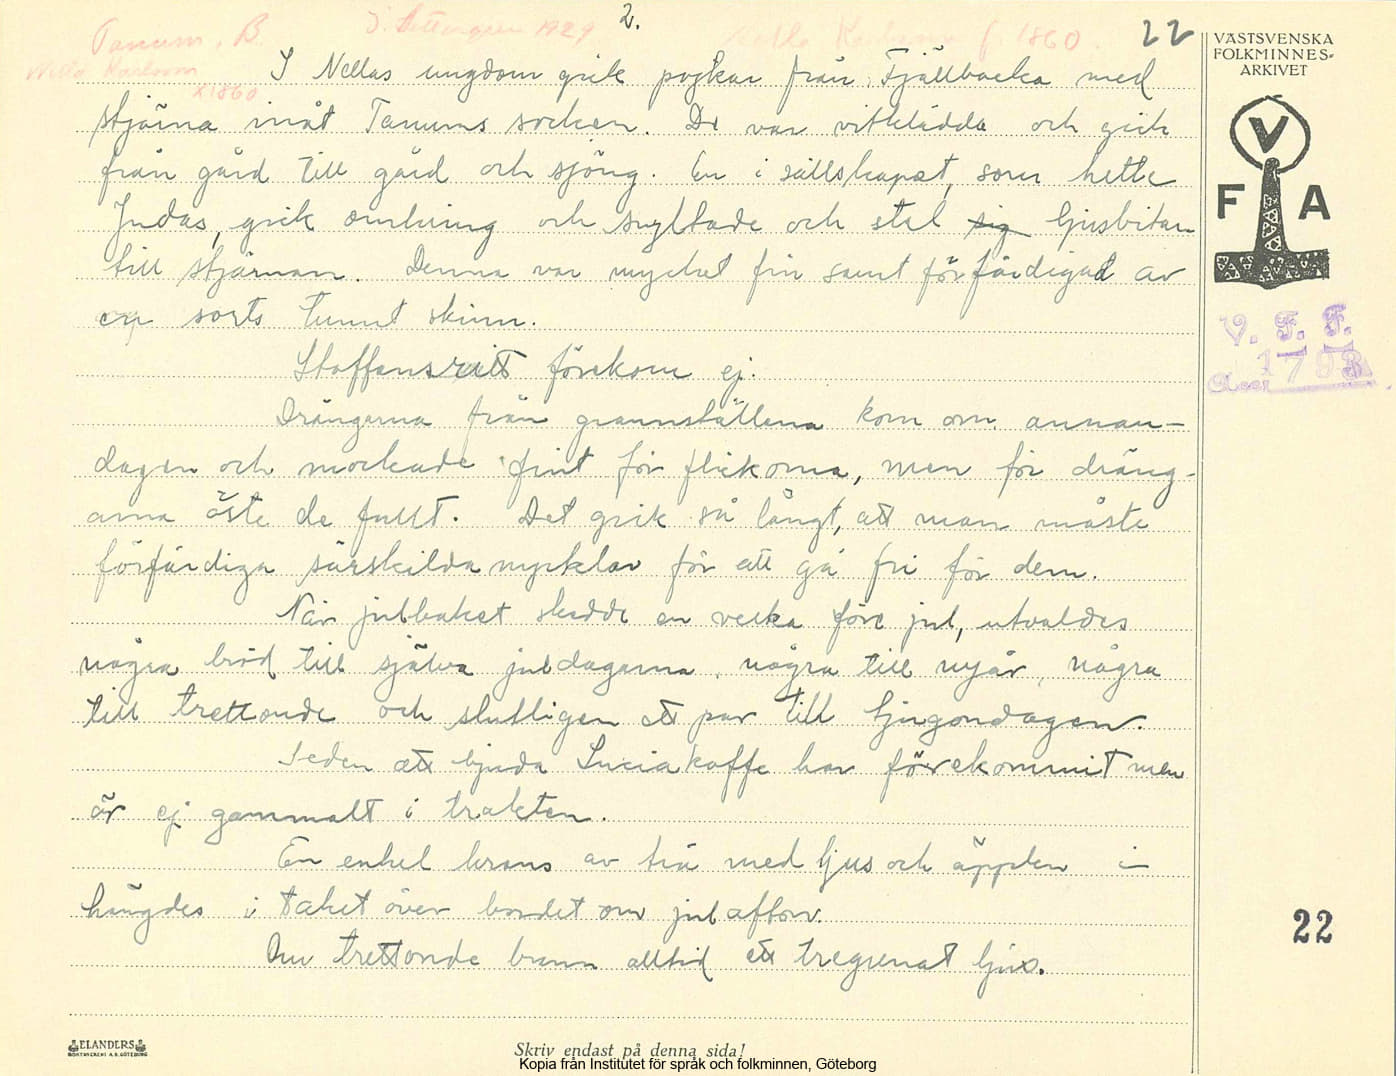 2.
22
Tanum, B.
J. Pettersson 1929
Nella Karlsson f. 1860.
Nella Karlsson
x1860
VÄSTSVENSKA
FOLKMINNES-
ARKIVET
V
F A
V. F. F.
Acc. 1793
I Nellas ungdom gick pojkar från Fjällbacka med
stjärna inåt Tanums socken. De var vitklädda och gick
från gård till gård och sjöng. En i sällskapet, som hette
Judas, gick omkring och snyltade och stal sig ljusbitar
till stjärnan. Denna var mycket fin samt förfärdigad av
en sorts tunnt skinn.
Staffansritt förekom ej.
Drängarna från grannställena kom om annan-
dagen och mockade fint för flickorna, men för dräng-
arna öste de fullt. Det gick så långt, att man måste
förfärdiga särskilda nycklar för att gå fri för dem.
När julbaket skedde en vecka före jul, utvaldes
några bröd till själva juldagarna, några till nyår, några
till trettonde och slutligen ett par till tjugondagen.
Seden att bjuda Luciakaffe har förekommit men
är ej gammalt i trakten.
En enkel krans av trä med ljus och äpplen i
hängdes i taket över bordet om julafton.
Om trettonde brann alltid ett tregrenat ljus.
22
ELANDERS
BOKTRYCKERI A.B. GÖTEBORG
Skriv endast på denna sida!
Kopia från Institutet för språk och folkminnen, Göteborg